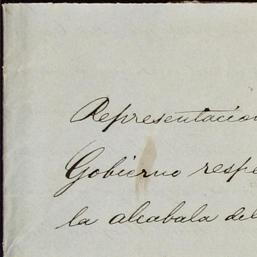 Representacion
Gobierno respe
la alcabala del